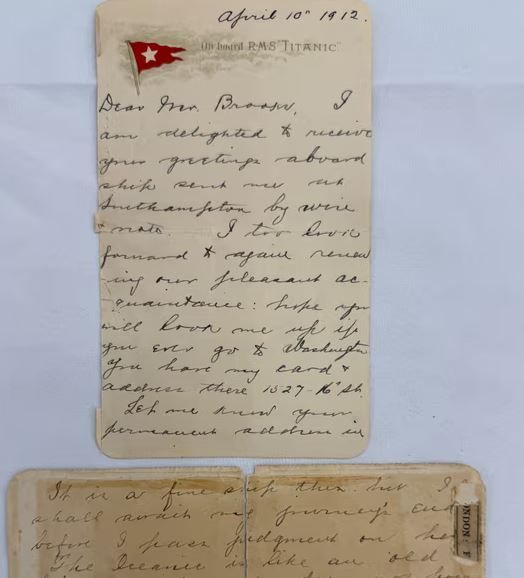 April 10th 1912.
On board R.M.S. "TITANIC"
Dear Mr. , I
am delighted to receive
your greetings aboard
ship sent me at
Southampton by wire
& note. I too look
forward to again renew
-ing our pleasant ac-
quaintance: hope you
will look me up if
you ever go to Washington
You have my card &
address there 1527-16th St.
Let me know your
permanent address in
It is a fine ship this but I
shall await my journeys end
before I pass judgment on her
The Oceanic is like an old